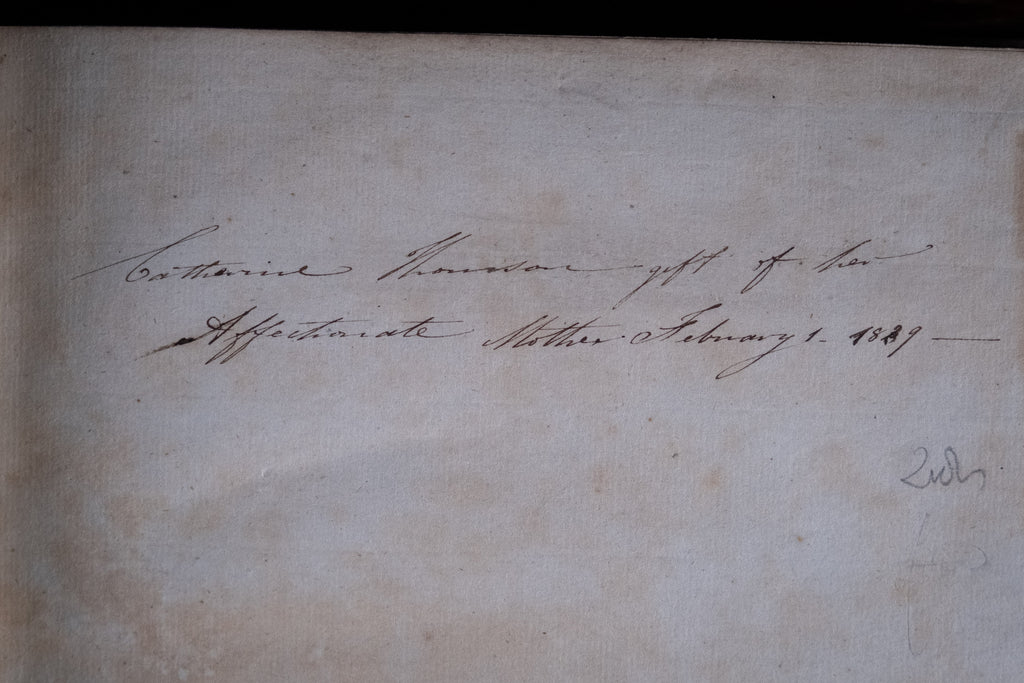 Catherine Thomson gift of her
Affectionate Mother February 1. 1839 —